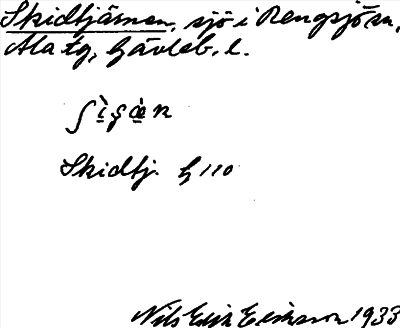 Skidtjärnen, sjö i Rengsjö sn,
Ala tg, Gävleb. l.
ʃìʂæ̀n
Skidtj. G 110
Nils Erik Eriksson 1933